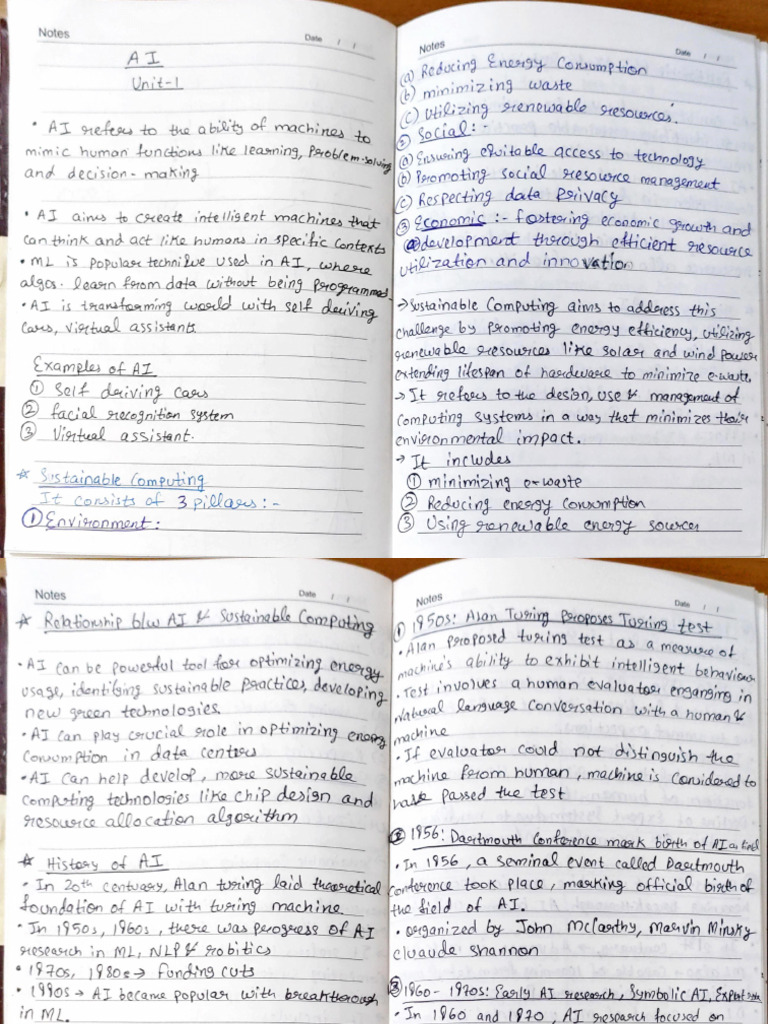 Notes
Date / /
AI
Unit-1
• AI refers to the ability of machines to
mimic human functions like learning, Problem-solving
and decision-making
• AI aims to create intelligent machines that
can think and act like humans in specific contexts
• ML is popular technique used in AI, where
algos. learn from data without being programmed.
• AI is transforming world with self driving
cars, virtual assistants
Examples of AI
① Self driving cars
② facial recognition system
③ Virtual assistant.
☆ Sustainable Computing
It consists of 3 pillars:-
① Environment:
Notes
Date / /
(a) Reducing Energy Consumption
(b) minimizing waste
(c) Utilizing renewable resources.
② Social:-
(a) Ensuring equitable access to technology
(b) Promoting social resource management
(c) Respecting data Privacy
③ Economic :- fostering economic growth and
development through efficient resource
utilization and innovation
→ Sustainable Computing aims to address this
challenge by Promoting energy efficiency, utilizing
renewable resources like solar and wind power
extending lifespan of hardware to minimize e-waste.
→ It refers to the design, use & management of
Computing systems in a way that minimizes their
environmental impact.
→ It includes
① minimizing e-waste
② Reducing energy consumption
③ Using renewable energy sources
Notes
Date / /
☆ Relationship b/w AI & Sustainable Computing
• AI can be powerful tool for optimizing energy
usage, identifying sustainable practices, developing
new green technologies.
• AI can play crucial role in optimizing energy
consumption in data centers
• AI can help develop, more sustainable
computing technologies like chip design and
resource allocation algorithm
☆ History of AI
• In 20th centuary, Alan turing laid theoretical
foundation of AI with turing machine.
• In 1950s, 1960s, there was progress of AI
research in ML, NLP & robitics
• 1970s, 1980s → funding cuts
• 1990s → AI became popular with breakthrough
in ML.
Notes
Date / /
① 1950s: Alan Turing Proposes Turing test
• Alan proposed turing test as a measure of
machine's ability to exhibit intelligent behaviour
• Test involves a human evaluator enganging in
Natural language conversation with a human &
machine
• If evaluator could not distinguish the
machine from human, machine is considered to
have passed the test
② 1956: Dartmouth Conference mark birth of AI as
• In 1956, a seminal event called Dartmouth
Conference took place, marking official birth of
the field of AI.
• organized by John McCarthy, Marvin Minsky
cluaude shannon
③ 1960-1970s: Early AI research, Symbolic AI, Expert
• In 1960 and 1970, AI research focused on